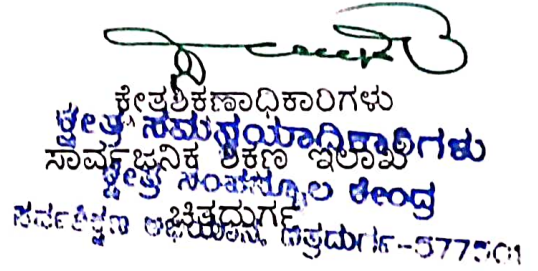 ಕ್ಷೇತ್ರಶಿಕ್ಷಣಾಧಿಕಾರಿಗಳು
ಕ್ಷೇತ್ರ ಸಮನ್ವಯಾಧಿಕಾರಿಗಳು
ಸಾರ್ವಜನಿಕ ಶಿಕ್ಷಣ ಇಲಾಖೆ
ಕ್ಷೇತ್ರ ಸಂಪನ್ಮೂಲ ಕೇಂದ್ರ
ಚಿತ್ರದುರ್ಗ
ಸರ್ವಶಿಕ್ಷಣ ಅಭಿಯಾನ, ಚಿತ್ರದುರ್ಗ-577501